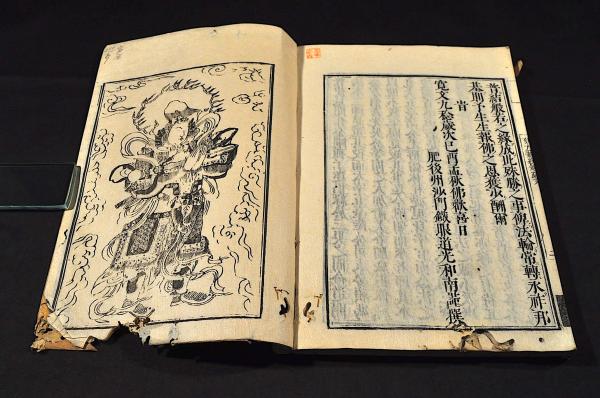 普結般若之緣成此殊勝之事傳法輪常轉永祚邦
基期予生生報佛之恩少酬爾
旹
寛文九稔歲次己酉孟秋佛歡喜日
肥後州沙門鐵眼道光和南謹撰